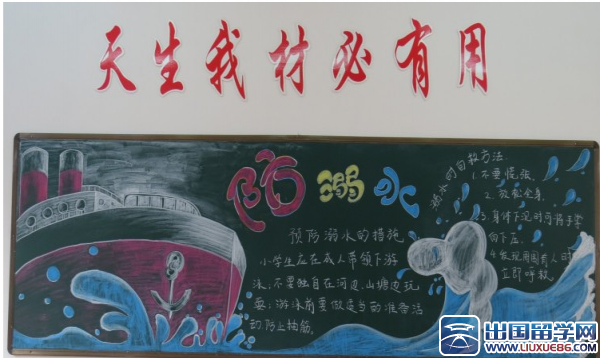 天生我材必有用
防溺水
预防溺水的措施
小学生应在成人带领下游
泳；不要独自在河边、山塘边玩
耍；游泳前要做适当的准备活
动，防止抽筋。
溺水时自救方法：
1. 不要慌张，
2. 放松全身，
3. 身体下沉时可将手掌
向下压
4. 发现周围有人时
立即呼救
出国留学网
WWW.LIUXUE86.COM